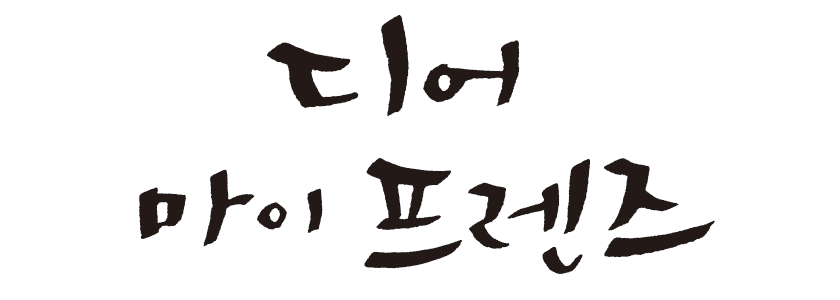 디어
마이 프렌즈